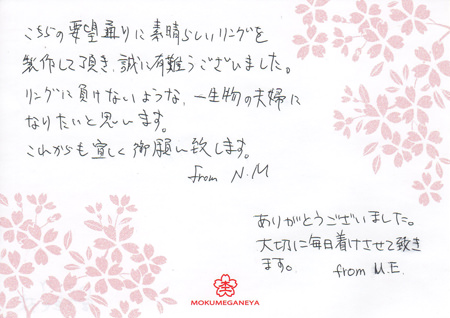 こちらの要望通りに素晴らしいリングを
製作して頂き、誠に有難うございました。
リングに負けないような、一生物の夫婦に
なりたいと思います。
これからも宜しく御願い致します。
from N.M
ありがとうございました。
大切に毎日着けさせて頂き
ます。 from U.E.
杢
MOKUMEGANEYA